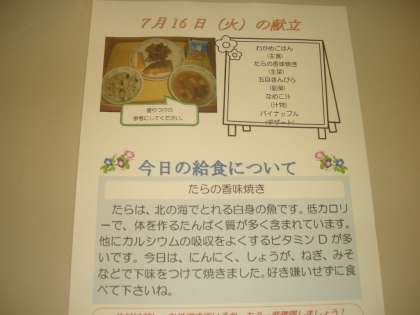 7月16日（火）の献立
わかめごはん
（主食）
たらの香味焼き
（主菜）
五目きんぴら
（副菜）
なめこ汁
（汁物）
パイナップル
（デザート）
盛りつけの
参考にしてください。
今日の給食について
たらの香味焼き
たらは、北の海でとれる白身の魚です。低カロリ
ーで、体を作るたんぱく質が多く含まれています。
他にカルシウムの吸収をよくするビタミンDが多
いです。今日は、にんにく、しょうが、ねぎ、みそ
などで下味をつけて焼きました。好き嫌いせずに食
べて下さいね。